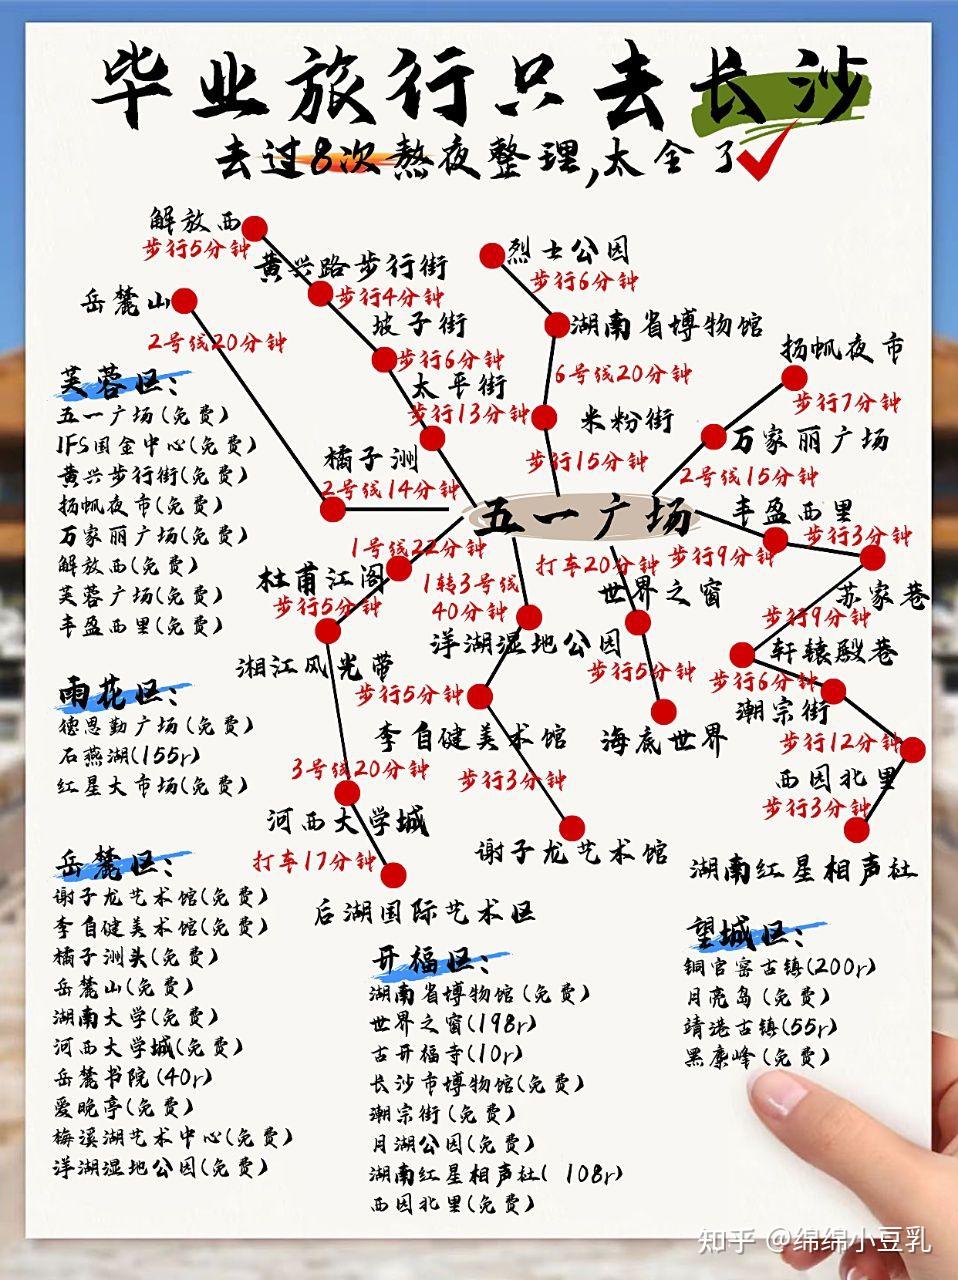 毕业旅行只去长沙
去过8次熬夜整理,太全了
解放西
步行5分钟
黄兴路步行街
步行4分钟
坡子街
步行6分钟
太平街
步行13分钟
烈士公园
步行6分钟
湖南省博物馆
6号线20分钟
米粉街
步行15分钟
扬帆夜市
步行7分钟
万家丽广场
2号线15分钟
岳麓山
2号线20分钟
橘子洲
2号线14分钟
五一广场
丰盈西里
步行3分钟
步行9分钟
苏家巷
步行9分钟
轩辕殿巷
步行6分钟
潮宗街
步行12分钟
西园北里
步行3分钟
湖南红星相声社
打车20分钟
世界之窗
步行5分钟
海底世界
1转3号线
40分钟
洋湖湿地公园
步行5分钟
李自健美术馆
步行3分钟
谢子龙艺术馆
1号线22分钟
杜甫江阁
步行5分钟
湘江风光带
3号线20分钟
河西大学城
打车17分钟
后湖国际艺术区
芙蓉区:
五一广场(免费)
IFS国金中心(免费)
黄兴步行街(免费)
扬帆夜市(免费)
万家丽广场(免费)
解放西(免费)
芙蓉广场(免费)
丰盈西里(免费)
雨花区:
德思勤广场(免费)
石燕湖(155r)
红星大市场(免费)
岳麓区:
谢子龙艺术馆(免费)
李自健美术馆(免费)
橘子洲头(免费)
岳麓山(免费)
湖南大学(免费)
河西大学城(免费)
岳麓书院(40r)
爱晚亭(免费)
梅溪湖艺术中心(免费)
洋湖湿地公园(免费)
开福区:
湖南省博物馆(免费)
世界之窗(198r)
古开福寺(10r)
长沙市博物馆(免费)
潮宗街(免费)
月湖公园(免费)
湖南红星相声社( 108r)
西园北里(免费)
望城区:
铜官窑古镇(200r)
月亮岛(免费)
靖港古镇(55r)
黑麋峰(免费)
知乎 @绵绵小豆乳